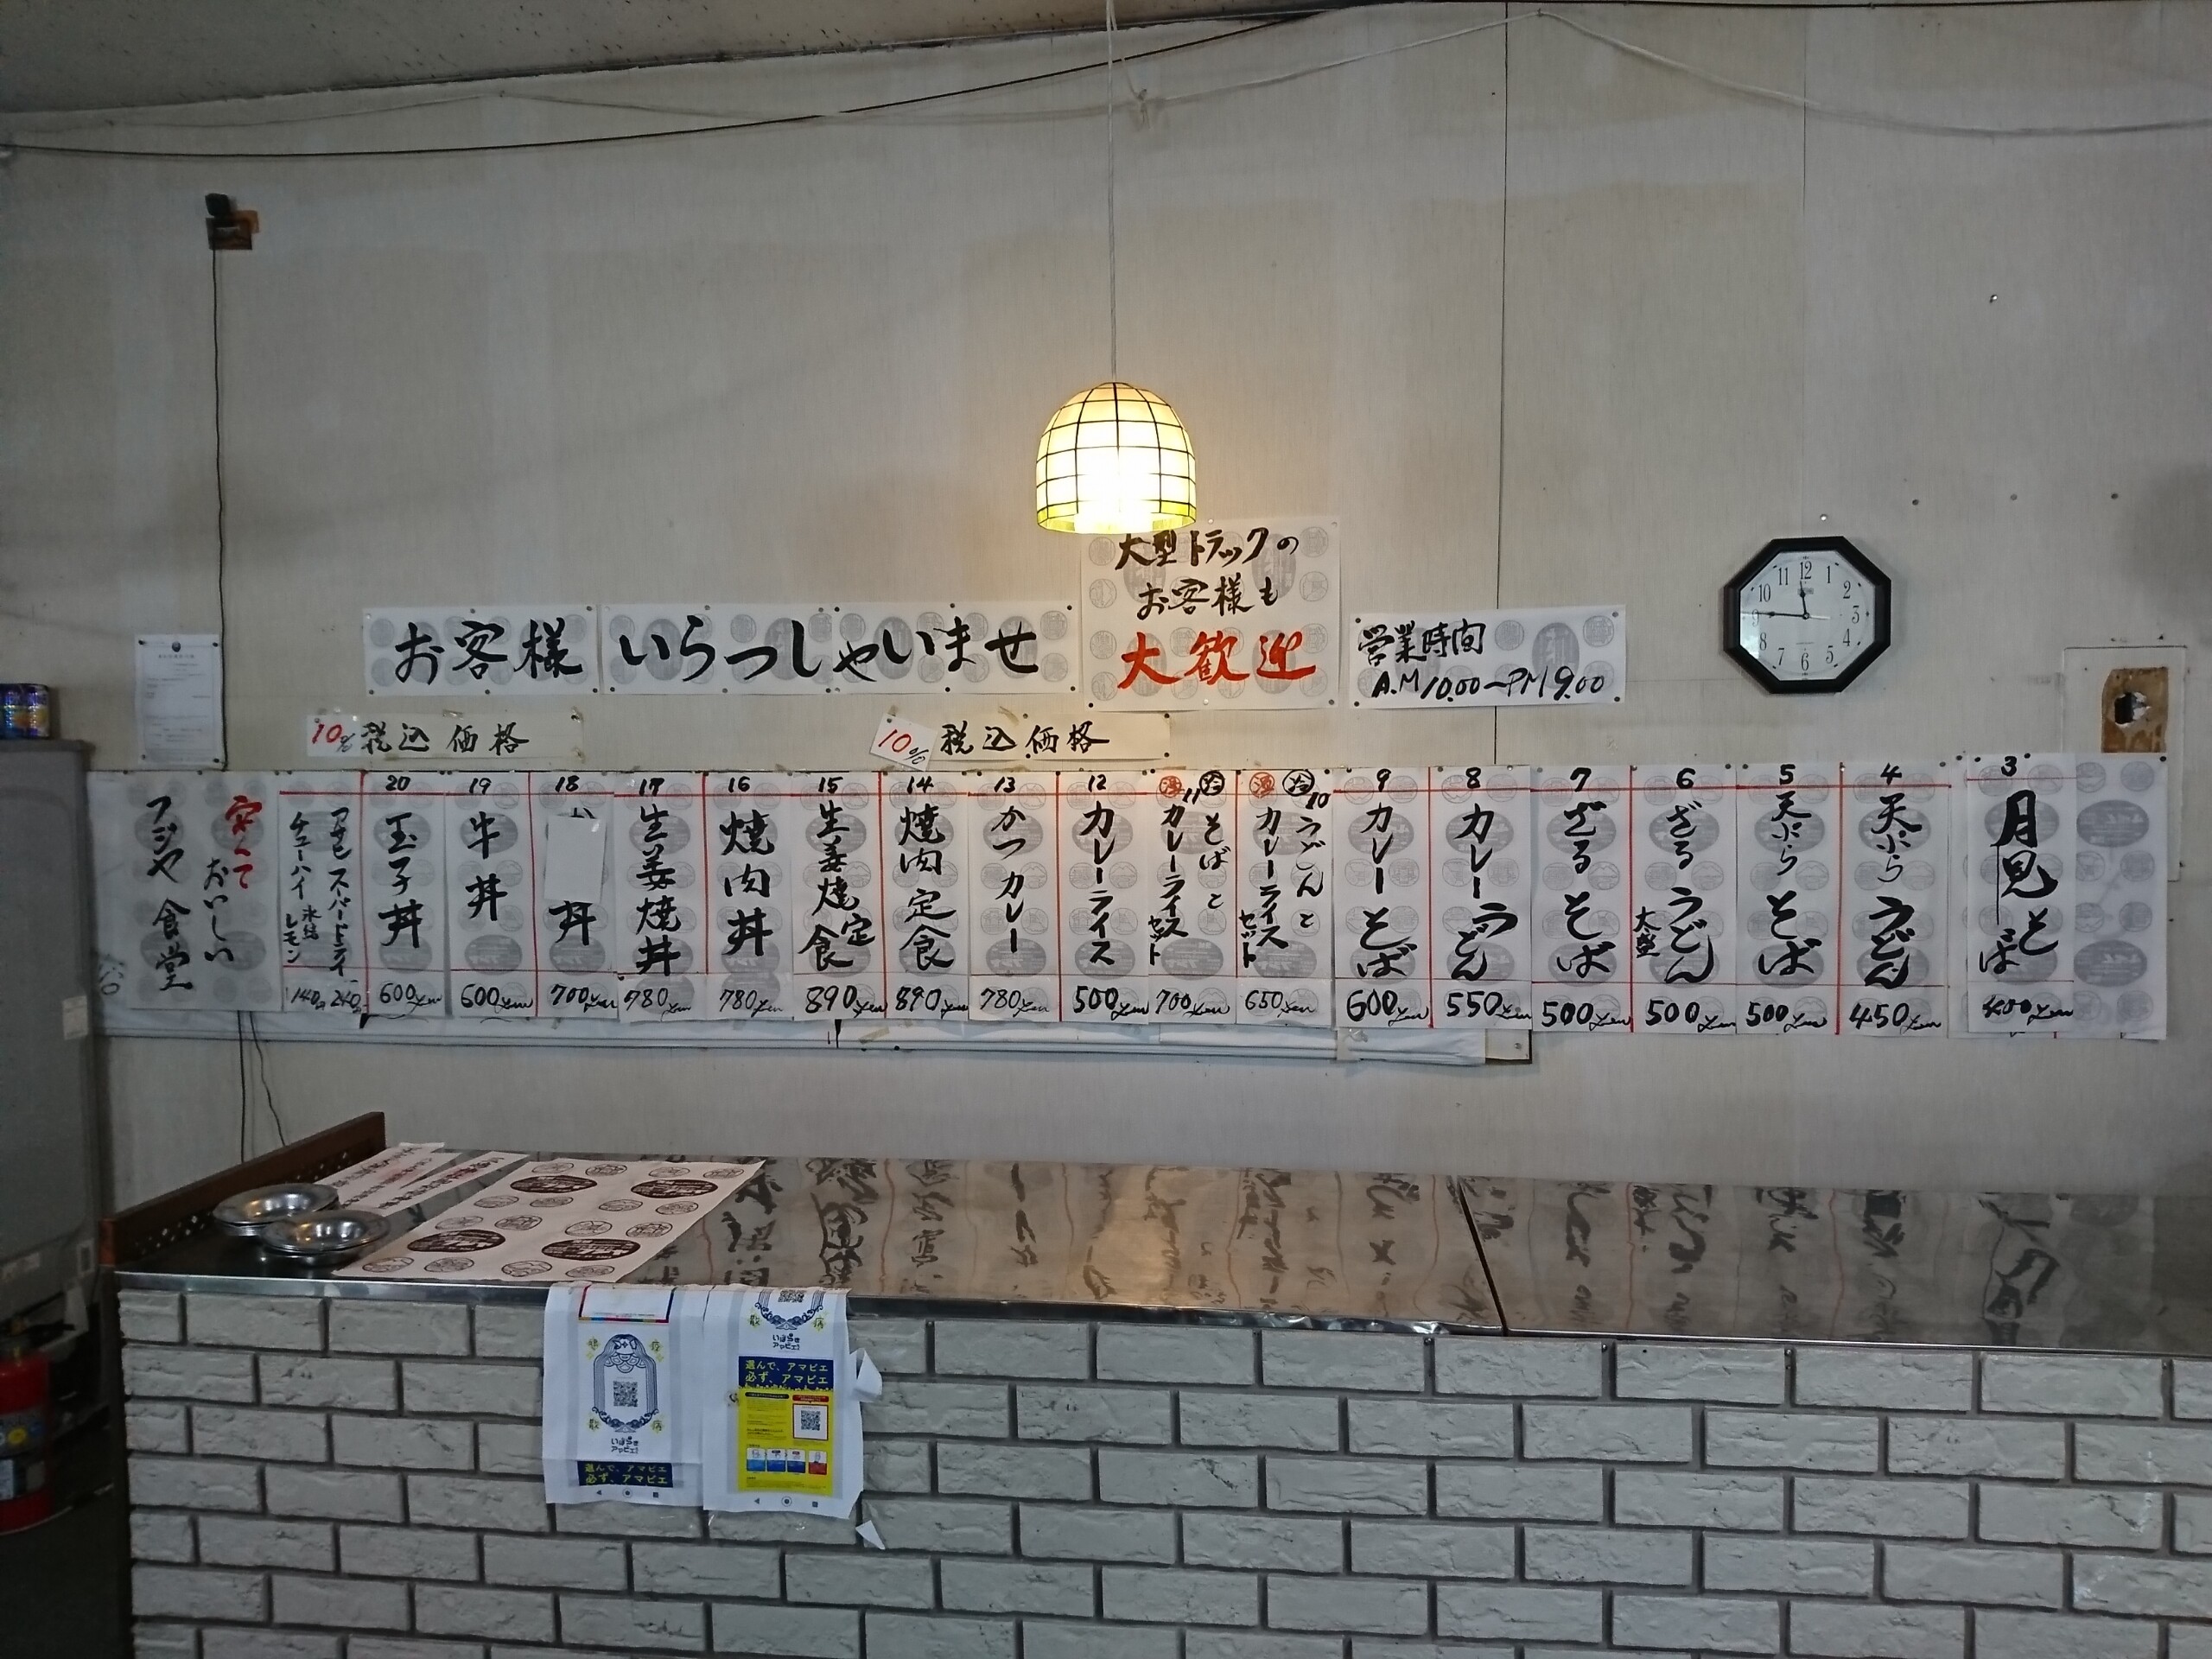 大型トラックの
お客様も
大歓迎
お客様 いらっしゃいませ
営業時間
A.M 10.00〜PM 9.00
12
11
10
9
8
7
6
5
4
3
2
1
10% 税込価格
10% 税込価格
3
月見そば
400yen
4
天ぷらうどん
450yen
5
天ぷらそば
500yen
6
ざるうどん
大盛
500yen
7
ざるそば
500yen
8
カレーうどん
550yen
9
カレーそば
600yen
温 冷 10
うどんと
カレーライス
セット
650yen
温 11 冷
そばと
カレーライス
セット
700yen
12
カレーライス
500yen
13
かつカレー
780yen
14
焼肉定食
890yen
15
生姜焼定食
890yen
16
焼肉丼
780yen
17
生姜焼丼
780yen
18
丼
700yen
19
牛丼
600yen
20
玉子丼
600yen
アサヒスーパードライ
240
チューハイ 氷結 レモン
140
安くて
おいしい
フジヤ食堂
いばらき
アマビエ
選んで、アマビエ
必ず、アマビエ
いばらき
アマビエ
選んで、アマビエ
必ず、アマビエ